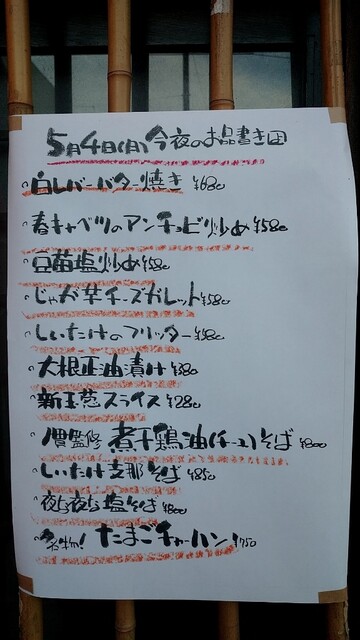 5月4日(月)今夜のお品書き
白レバーバター焼き ¥680
春キャベツのアンチョビ炒め ¥580
豆苗塩炒め ¥580
じゃが芋チーズガレット ¥580
しいたけのフリッター ¥580
大根正油漬け ¥380
新玉葱スライス ¥280
監修 煮干鶏油(チーユ)そば ¥800
しいたけ支那そば ¥850
夜な夜な塩そば ¥800
名物!たまごチャーハン ¥750